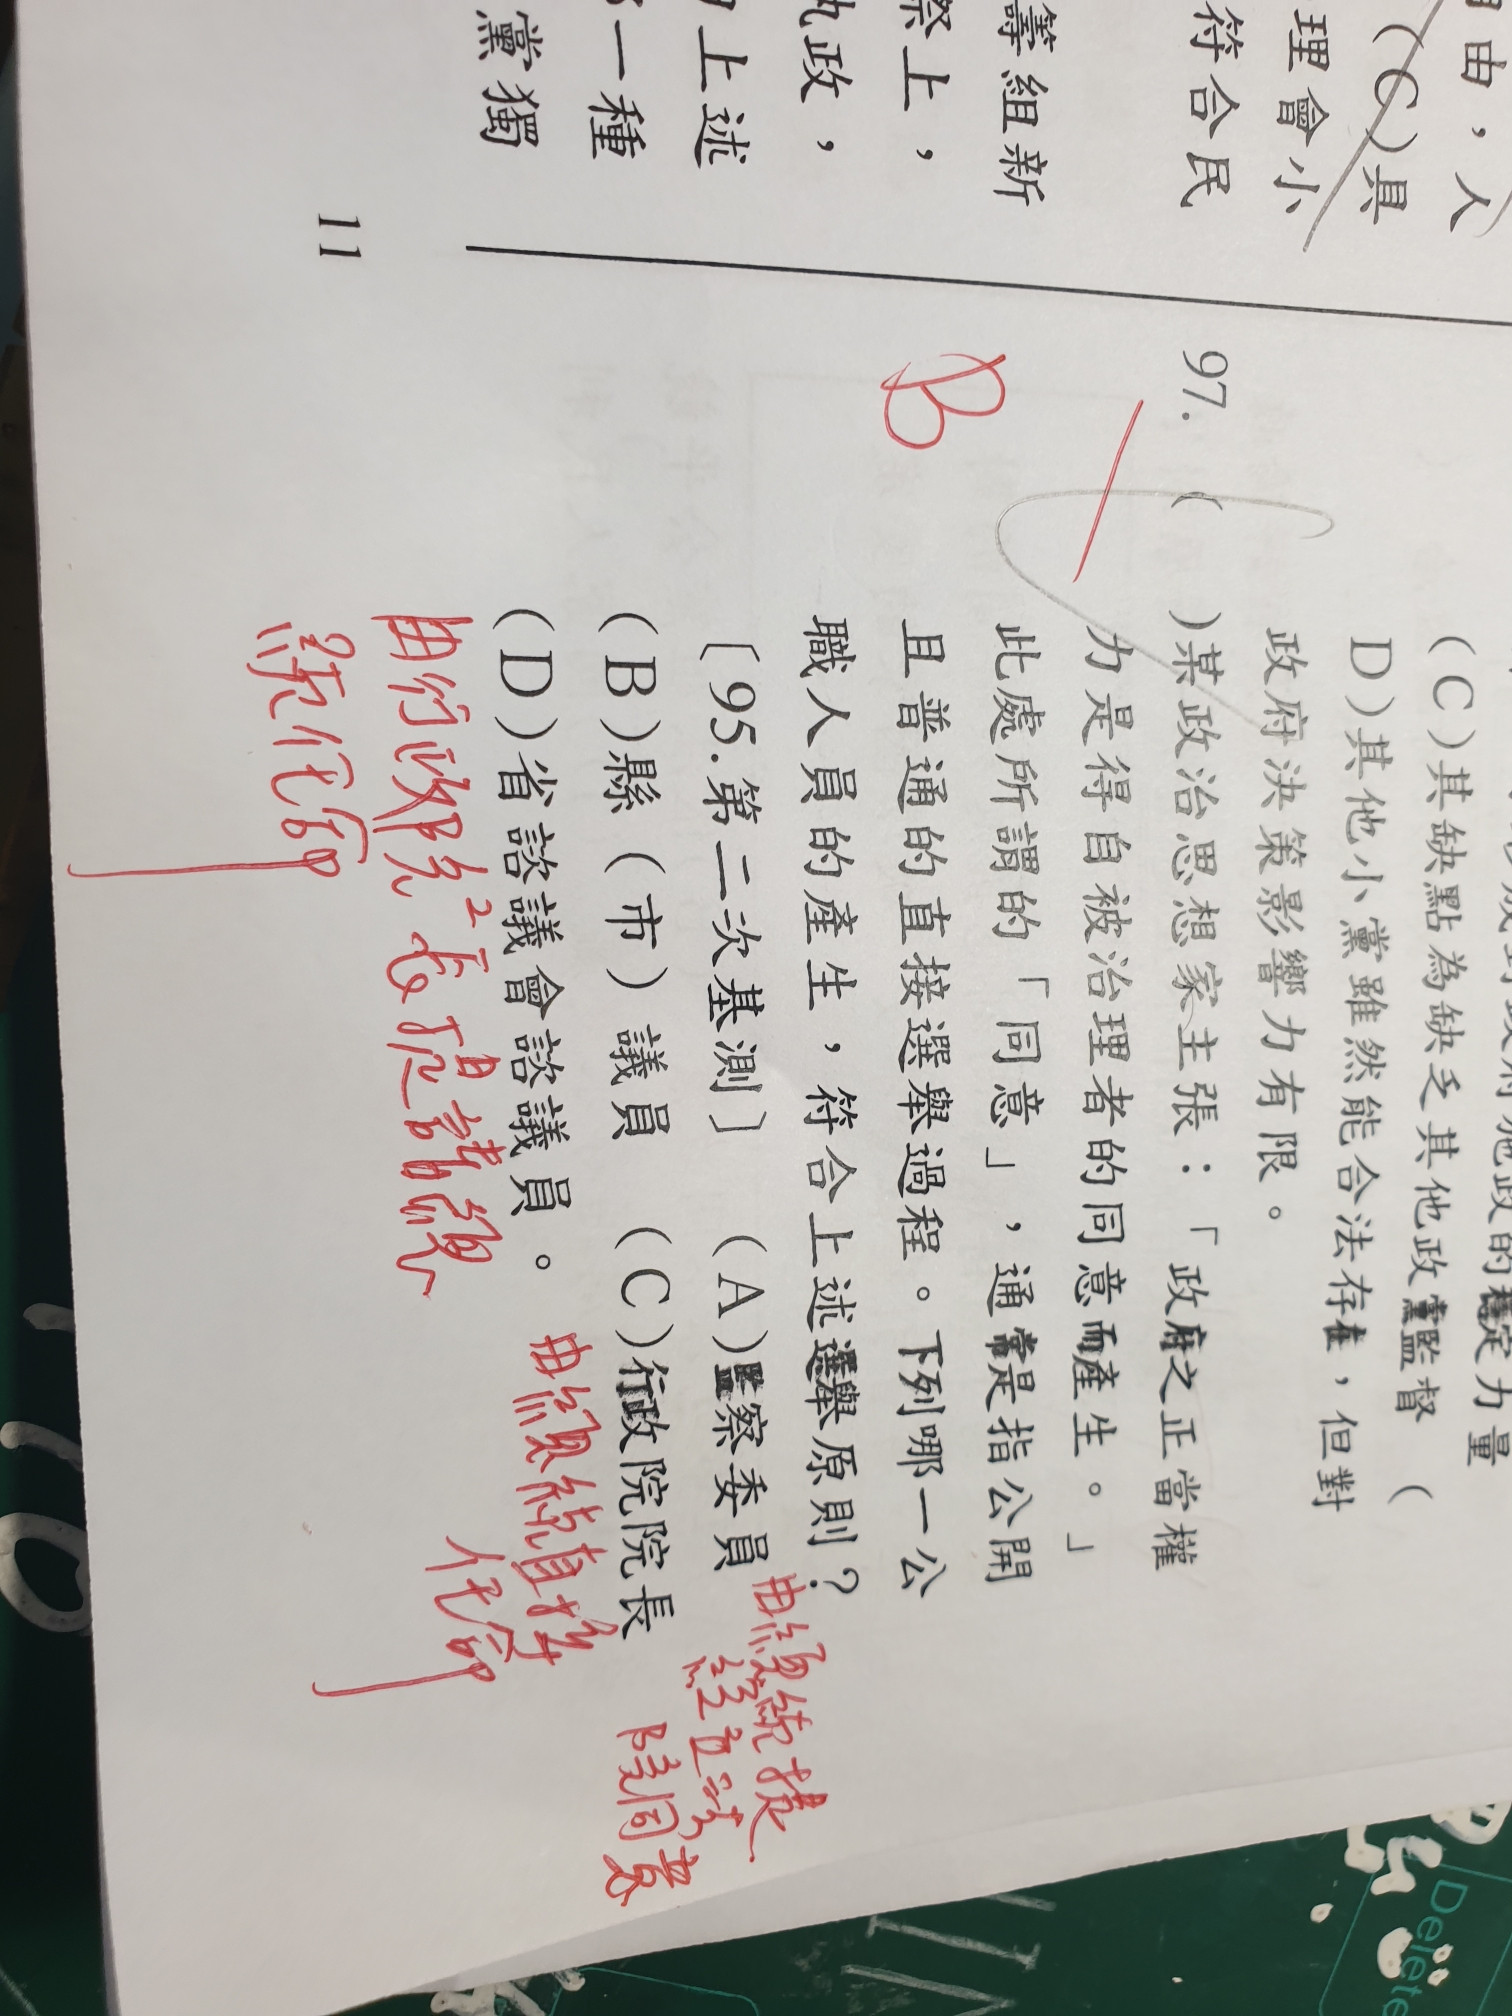 由，人
(C)具
理會小
符合民
籌組新
際上，
執政，
上述
一種
黨獨
11
政的穩定力量
(C)其缺點為缺乏其他政黨監督 (
D)其他小黨雖然能合法存在，但對
政府決策影響力有限。
97. (
)某政治思想家主張：「政府之正當權
力是得自被治理者的同意而產生。」
此處所謂的「同意」，通常是指公開
且普通的直接選舉過程。下列哪一公
職人員的產生，符合上述選舉原則？
〔95.第二次基測〕 (A)監察委員
(B)縣（市）議員 (C)行政院院長
(D)省諮議會諮議員。
B
由總統提
經立法
院同意
由總統直接
任命
由行政院長提請總
統任命
Delete